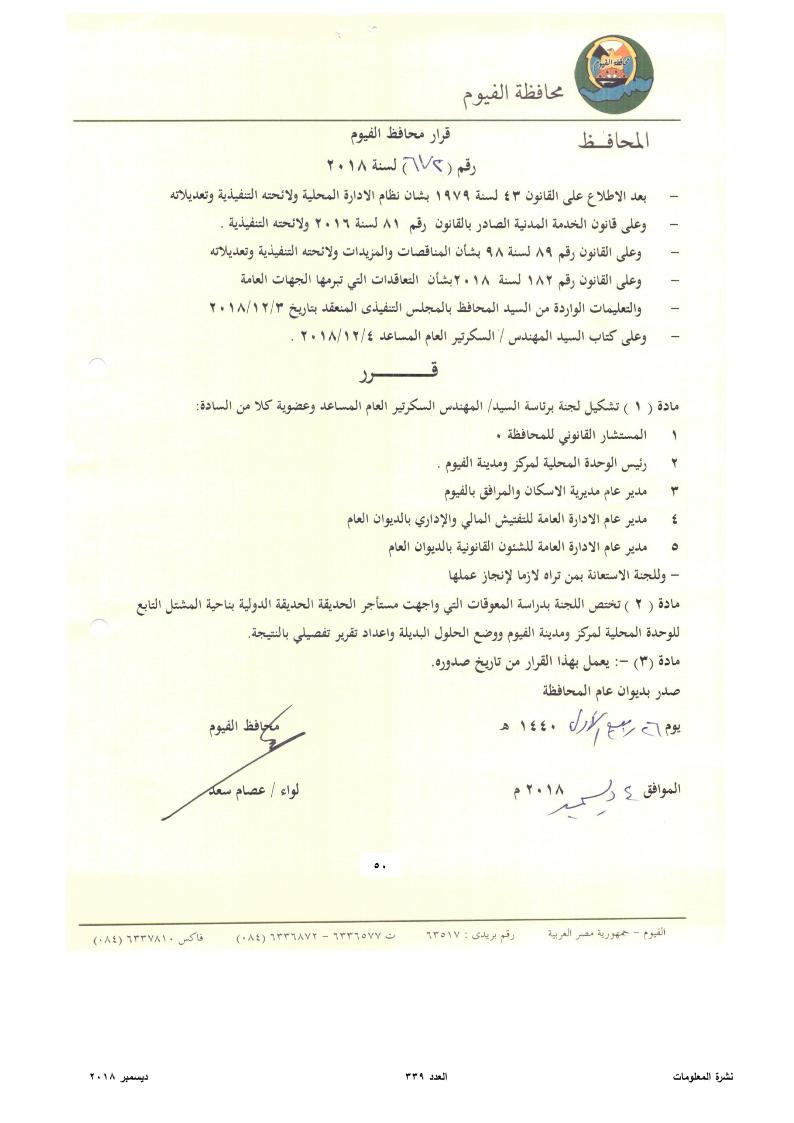 محافظة الفيوم
محافظة الفيوم
المحافـظ
قرار محافظ الفيوم
رقم ( ) لسنة ٢٠١٨
– بعد الاطلاع على القانون ٤٣ لسنة ١٩٧٩ بشان نظام الادارة المحلية ولائحته التنفيذية وتعديلاته
– وعلى قانون الخدمة المدنية الصادر بالقانون رقم ٨١ لسنة ٢٠١٦ ولائحته التنفيذية .
– وعلى القانون رقم ٨٩ لسنة ٩٨ بشأن المناقصات والمزيدات ولائحته التنفيذية وتعديلاته
– وعلى القانون رقم ١٨٢ لسنة ٢٠١٨بشأن التعاقدات التي تبرمها الجهات العامة
– والتعليمات الواردة من السيد المحافظ بالمجلس التنفيذى المنعقد بتاريخ ٢٠١٨/١٢/٣
– وعلى كتاب السيد المهندس / السكرتير العام المساعد ٢٠١٨/١٢/٤ .
قـــــــرر
مادة ( ١ ) تشكيل لجنة برئاسة السيد/ المهندس السكرتير العام المساعد وعضوية كلا من السادة:
١ المستشار القانوني للمحافظة ٠
٢ رئيس الوحدة المحلية لمركز ومدينة الفيوم .
٣ مدير عام مديرية الاسكان والمرافق بالفيوم
٤ مدير عام الادارة العامة للتفتيش المالي والإداري بالديوان العام
٥ مدير عام الادارة العامة للشئون القانونية بالديوان العام
– وللجنة الاستعانة بمن تراه لازما لإنجاز عملها
مادة ( ٢ ) تختص اللجنة بدراسة المعوقات التي واجهت مستأجر الحديقة الحديقة الدولية بناحية المشتل التابع
للوحدة المحلية لمركز ومدينة الفيوم ووضع الحلول البديلة واعداد تقرير تفصيلي بالنتيجة.
مادة (٣) –: يعمل بهذا القرار من تاريخ صدوره.
صدر بديوان عام المحافظة
يوم ٢٦ ربيع الأول ١٤٤٠ هـ
محافظ الفيوم
الموافق ٤ ديسمبر ٢٠١٨ م
لواء / عصام سعد
٥٠
الفيوم – جمهورية مصر العربية رقم بريدى : ٦٣٥١٧ ت ٦٣٣٦٥٧٧ – ٦٣٣٦٨٧٢ (٠٨٤) فاكس ٦٣٣٧٨١٠ (٠٨٤)
نشرة المعلومات العدد ٣٣٩ ديسمبر ٢٠١٨